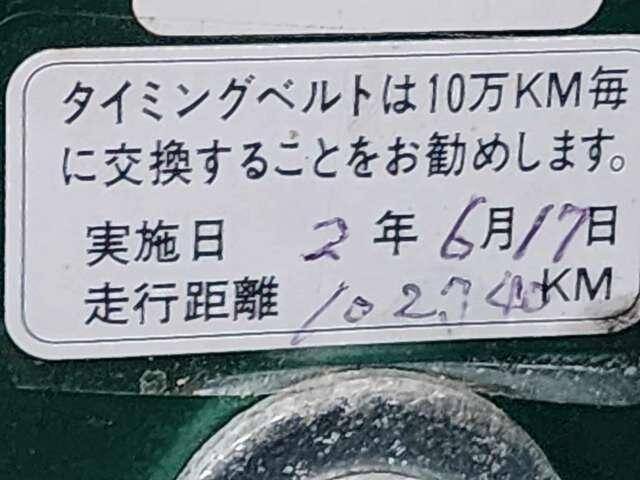 タイミングベルトは10万KM毎
に交換することをお勧めします。
実施日 2年6月17日
走行距離 102,740KM